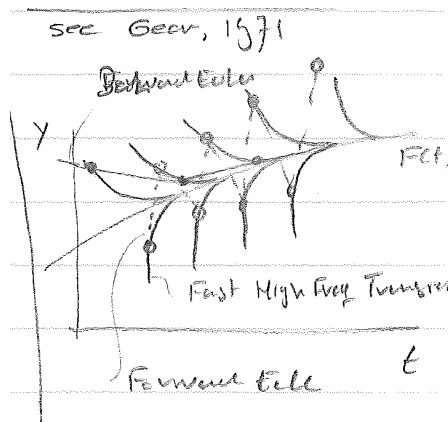 see Gear, 1971
Backward Euler
y
F(t,
Fast High Freq Transie
t
Forward Eule